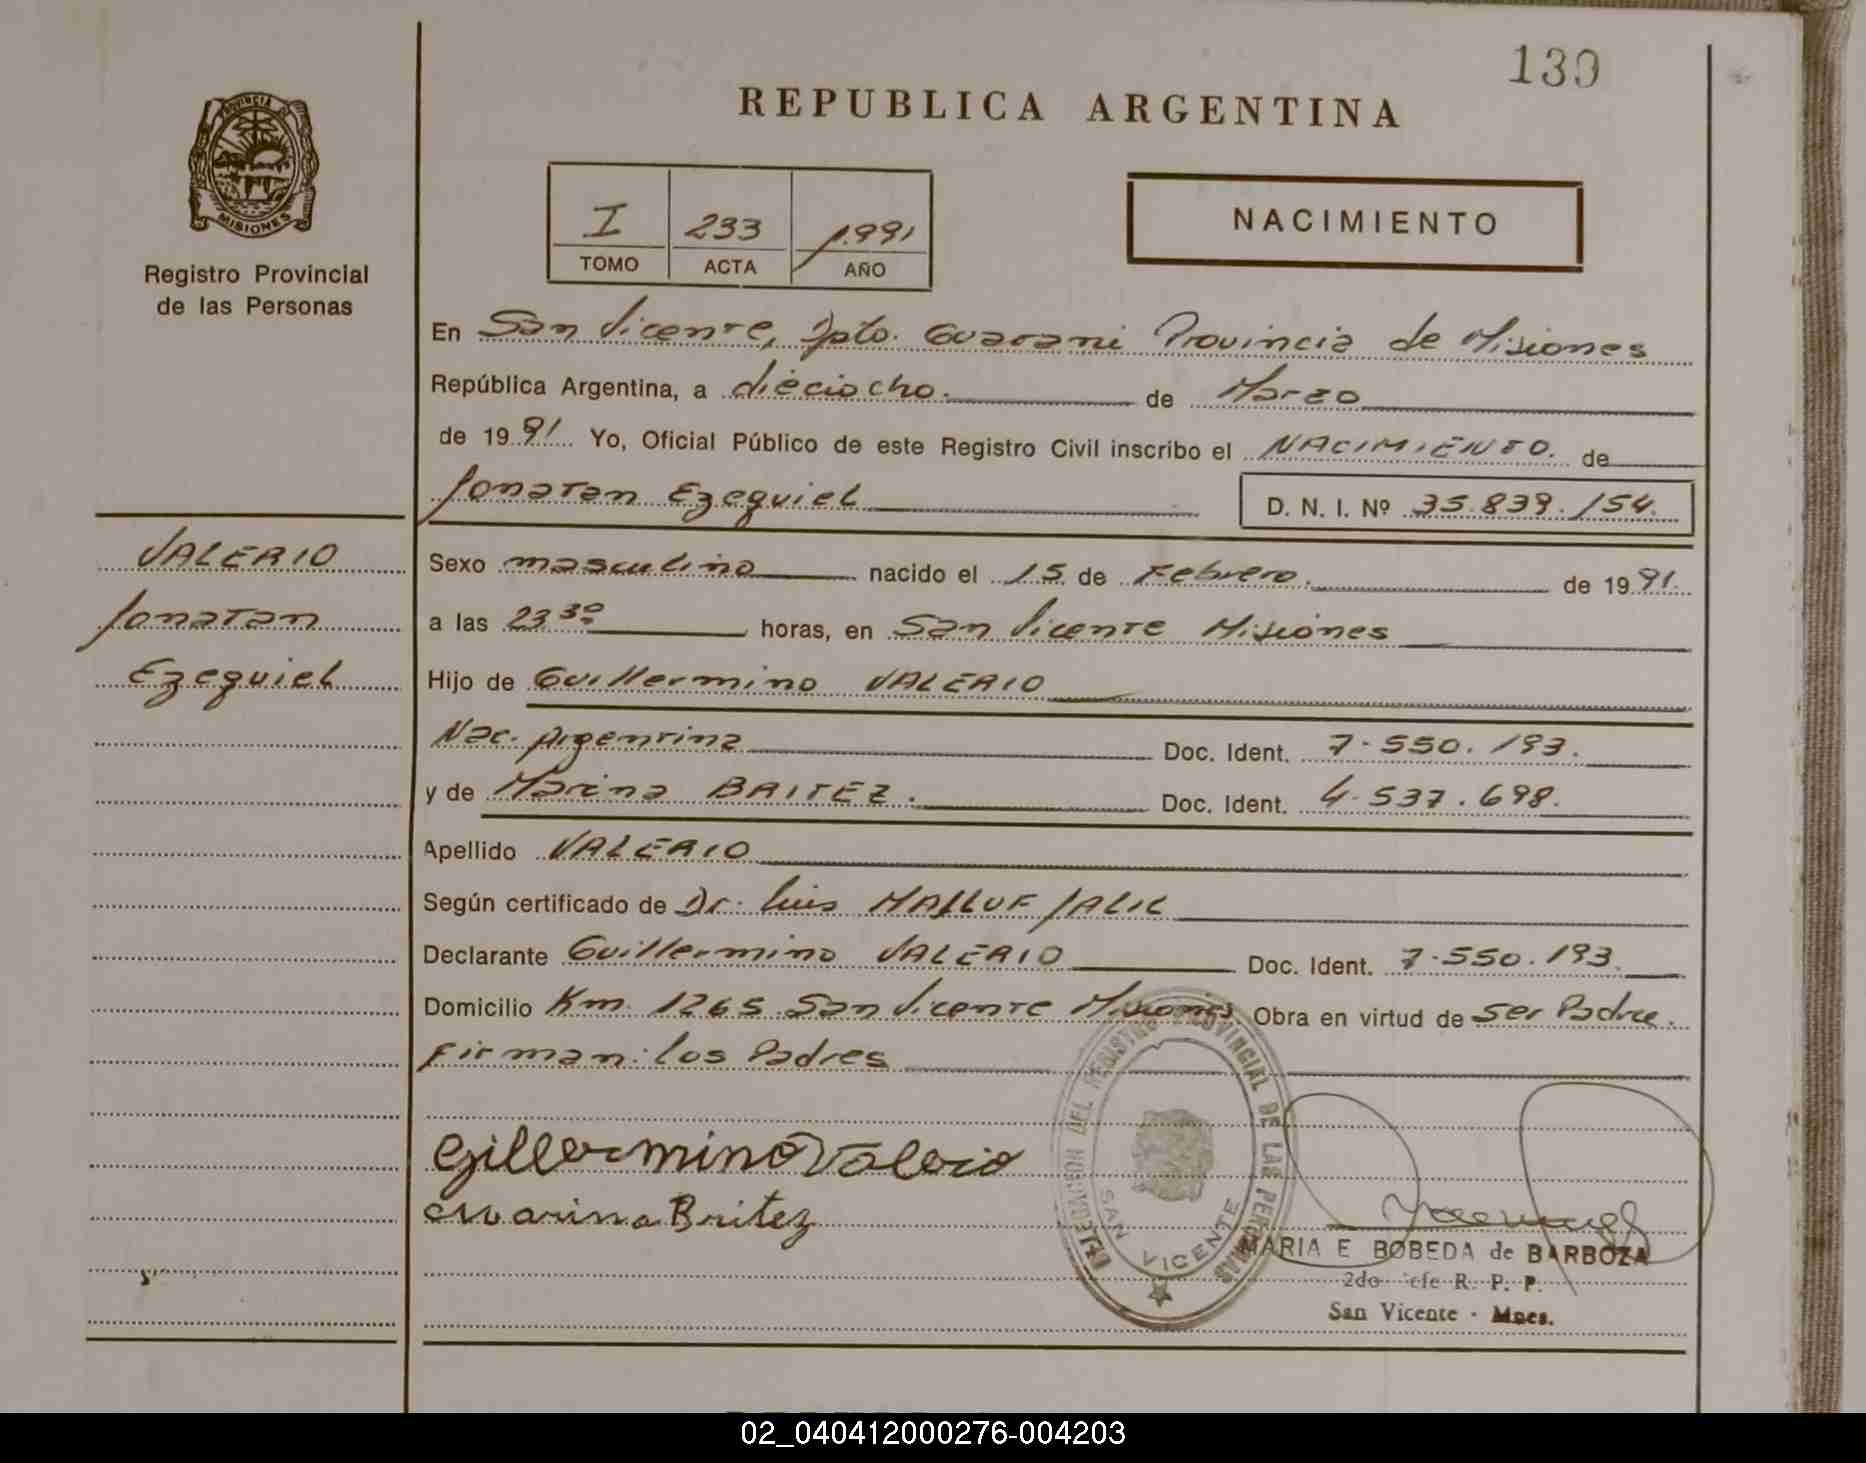 130
REPUBLICA ARGENTINA
PROVINCIA
MISIONES
Registro Provincial
de las Personas
I 233 1.991
TOMO ACTA AÑO
NACIMIENTO
En San Vicente, Dpto. Guarani Provincia de Misiones
República Argentina, a dieciocho. de Marzo
de 1991 Yo, Oficial Público de este Registro Civil inscribo el NACIMIENTO. de
Jonatan Ezequiel D. N. I. Nº 35.839.154.
VALERIO
Jonatan
Ezequiel
Sexo masculino nacido el 15 de Febrero. de 1991.
a las 23 30 horas, en San Vicente Misiones
Hijo de Guillermino VALERIO
Nac. Argentina Doc. Ident. 7.550.193.
y de Marina BRITEZ. Doc. Ident. 4.537.698.
Apellido VALERIO
Según certificado de Dr. Luis MALLUF JALIL
Declarante Guillermino VALERIO Doc. Ident. 7.550.193.
Domicilio Km. 1265 San Vicente Misiones Obra en virtud de ser Padre.
Firman: los Padres
Gillermino Valerio
Marina Britez
DELEGACION DEL REGISTRO PROVINCIAL DE LAS PERSONAS
SAN VICENTE
MARIA E BOBEDA de BARBOZA
2do Jefe R. P. P.
San Vicente - Mnes.
02_040412000276-004203